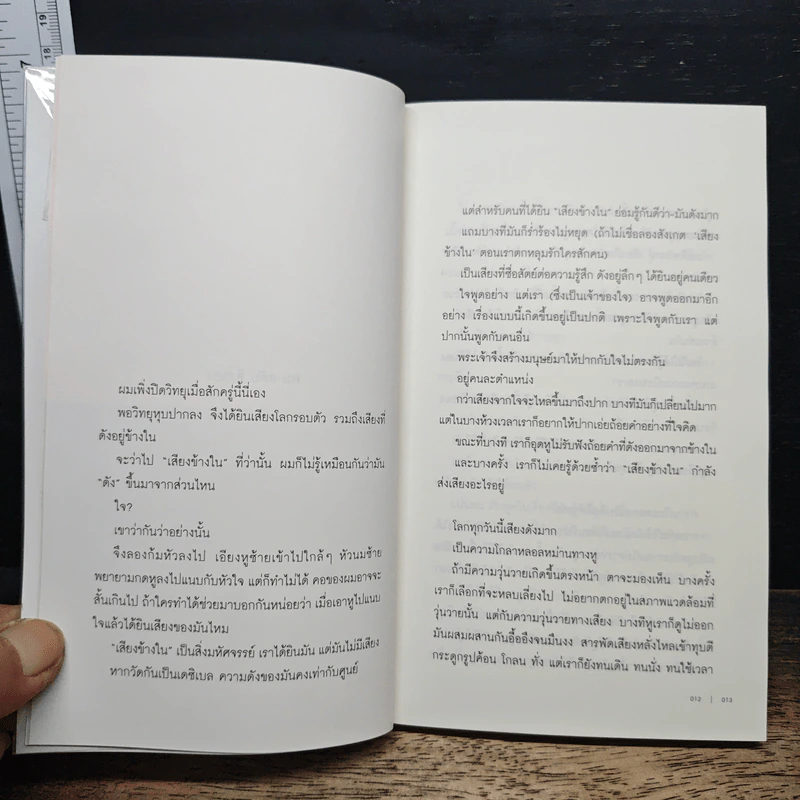 ผมเพิ่งปิดวิทยุเมื่อสักครู่นี้นี่เอง
พอวิทยุหุบปากลง จึงได้ยินเสียงโลกรอบตัว รวมถึงเสียงที่
ดังอยู่ข้างใน
จะว่าไป “เสียงข้างใน” ที่ว่านั้น ผมก็ไม่รู้เหมือนกันว่ามัน
“ดัง” ขึ้นมาจากส่วนไหน
ใจ?
เขาว่ากันว่าอย่างนั้น
จึงลองก้มหัวลงไป เอียงหูซ้ายเข้าไปใกล้ๆ หัวนมซ้าย
พยายามกดหูลงไปแนบกับหัวใจ แต่ก็ทำไม่ได้ คอของผมอาจจะ
สั้นเกินไป ถ้าใครทำได้ช่วยมาบอกกันหน่อยว่า เมื่อเอาหูไปแนบ
ใจแล้วได้ยินเสียงของมันไหม
“เสียงข้างใน” เป็นสิ่งมหัศจรรย์ เราได้ยินมัน แต่มันไม่มีเสียง
หากวัดกันเป็นเดซิเบล ความดังของมันคงเท่ากับศูนย์
แต่สำหรับคนที่ได้ยิน “เสียงข้างใน” ย่อมรู้กันดีว่า-มันดังมาก
แถมบางทีมันก็ร่ำร้องไม่หยุด (ถ้าไม่เชื่อลองสังเกต ‘เสียง
ข้างใน’ ตอนเราตกหลุมรักใครสักคน)
เป็นเสียงที่ซื่อสัตย์ต่อความรู้สึก ดังอยู่ลึกๆ ได้ยินอยู่คนเดียว
ใจพูดอย่าง แต่เรา (ซึ่งเป็นเจ้าของใจ) อาจพูดออกมาอีก
อย่าง เรื่องแบบนี้เกิดขึ้นอยู่เป็นปกติ เพราะใจพูดกับเรา แต่
ปากนั้นพูดกับคนอื่น
พระเจ้าจึงสร้างมนุษย์มาให้ปากกับใจไม่ตรงกัน
อยู่คนละตำแหน่ง
กว่าเสียงจากใจจะไหลขึ้นมาถึงปาก บางทีมันก็เปลี่ยนไปมาก
แต่ในบางห้วงเวลาเราก็อยากให้ปากเอ่ยถ้อยคำอย่างที่ใจคิด
ขณะที่บางที เราก็อุดหูไม่รับฟังถ้อยคำที่ดังออกมาจากข้างใน
และบางครั้ง เราก็ไม่เคยรู้ด้วยซ้ำว่า “เสียงข้างใน” กำลัง
ส่งเสียงอะไรอยู่
โลกทุกวันนี้เสียงดังมาก
เป็นความโกลาหลอลหม่านทางหู
ถ้ามีความวุ่นวายเกิดขึ้นตรงหน้า ตาจะมองเห็น บางครั้ง
เราก็เลือกที่จะหลบเลี่ยงไป ไม่อยากตกอยู่ในสภาพแวดล้อมที่
วุ่นวายนั้น แต่กับความวุ่นวายทางเสียง บางทีหูเราก็ดูไม่ออก
มันผสมผสานกันอื้ออึงจนมึนงง สารพัดเสียงหลั่งไหลเข้าทุบตี
กระดูกรูปค้อน โกลน ทั่ง แต่เราก็ยังทนเดิน ทนนั่ง ทนใช้เวลา
012 | 013
19
18
7